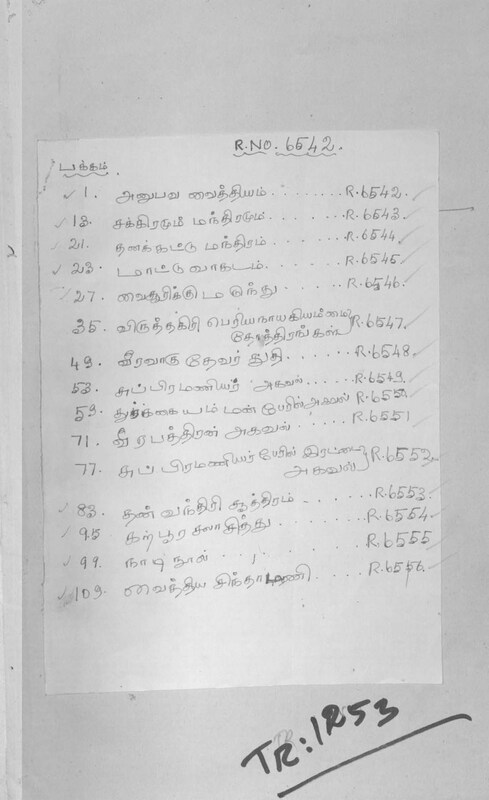 R.NO. 6542.
பக்கம்
✓ 1. அனுபவ வைத்தியம் ........ R.6542
✓ 13. சக்கிரமும் மந்திரமும் ..... R.6543
✓ 21. தனக்கட்டு மந்திரம் ..... R.6544
✓ 23. மாட்டு வாகடம் ..... R.6545
✓ 27. வைசூரிக்கு மருந்து ..... R.6546
35. விருத்தகிரி பெரியநாயகியம்மை
தோத்திரங்கள் } R.6547
49. வீரவாகு தேவர் துதி ..... R.6548
53. சுப்பிரமணியர் அகவல் .... R.6549
59. துர்க்கையம்மன் பேரில் அகவல் R.6550
71. வீரபத்திரன் அகவல் ..... R.6551
77. சுப்பிரமணியர் பேரில் இரட்டை
அகவல் } R.6552
✓ 83. தன்வந்திரி சூத்திரம் ..... R.6553
✓ 95. கற்பூர சலாசித்து ..... R.6554
✓ 99. நாடி நூல் .... R.6555
✓ 109. வைத்திய சிந்தாமணி ..... R.6556
TR:1253